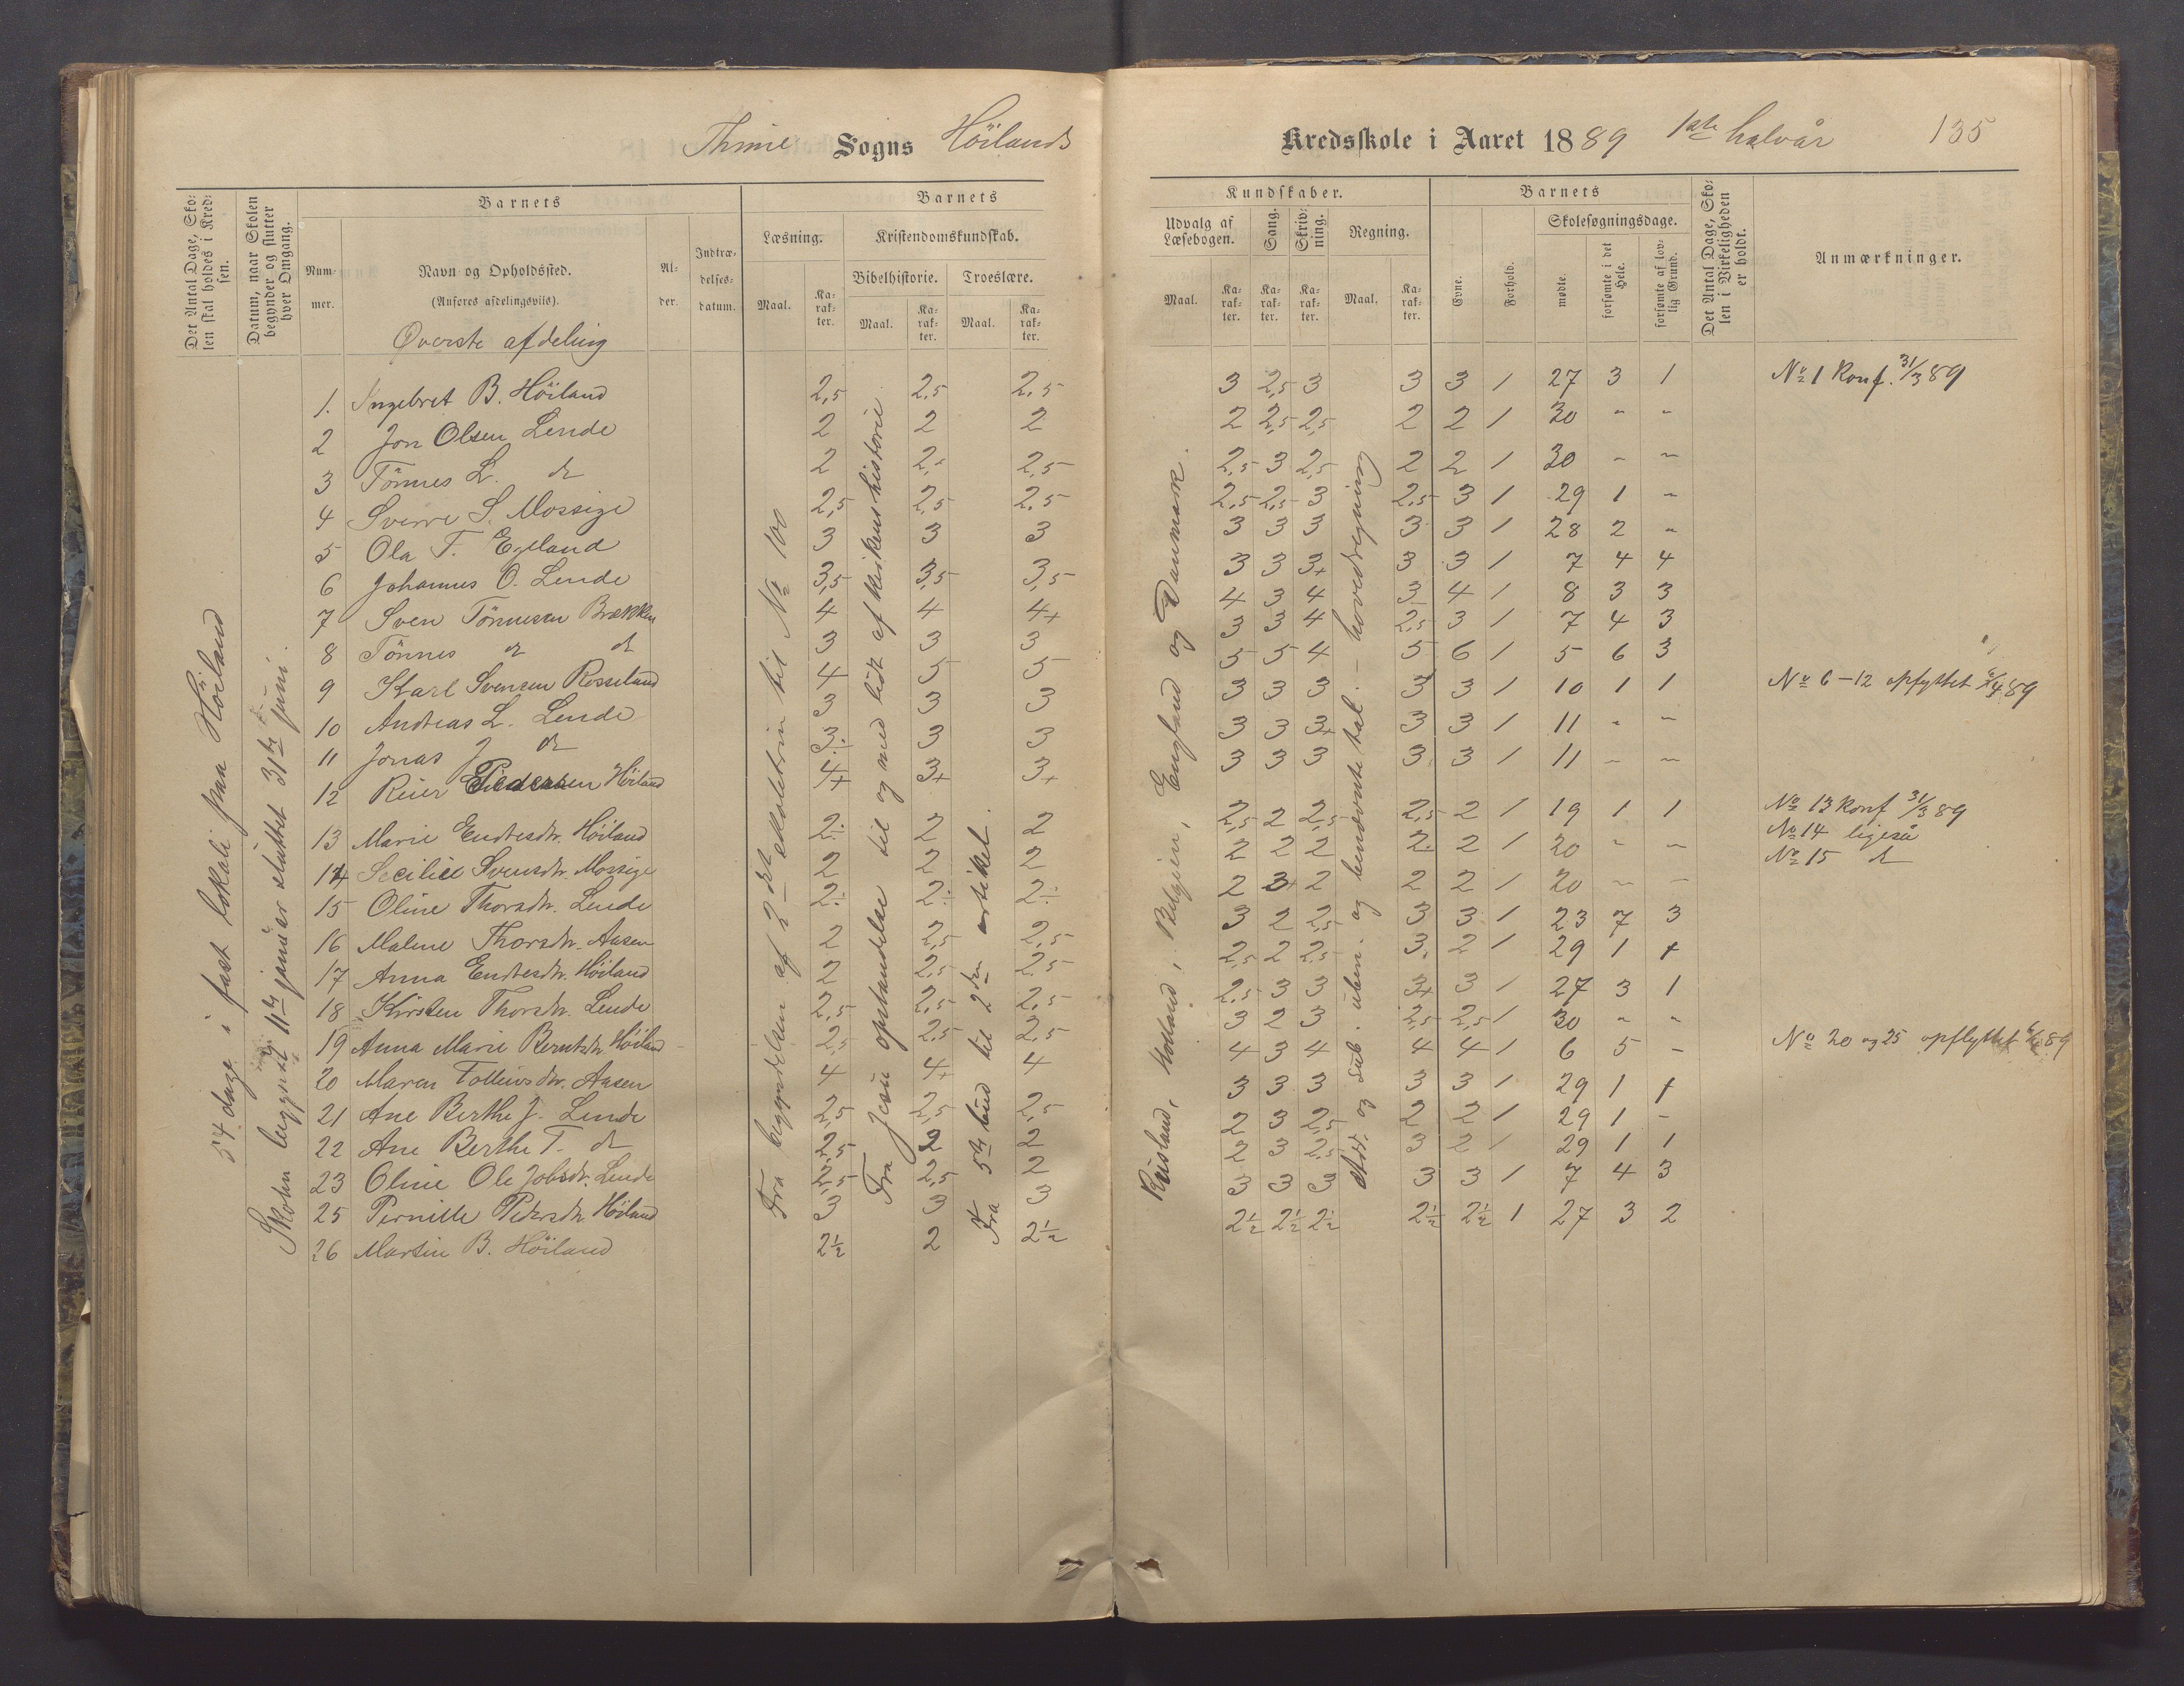 Thime Sogns Höilands
Kredsskole i Aaret 1889 1ste halvår 135
Det Antal Dage, Sko-
len skal holdes i Kred-
sen.
Datum, naar Skolen
begynder og slutter
hver Omgang.
Barnets
Num-
mer.
Navn og Opholdssted.
(Anføres afdelingsviis).
Al-
der.
Indtræ-
delses-
datum.
Barnets
Læsning.
Kristendomskundskab.
Bibelhistorie.
Troeslære.
Maal.
Ka-
rak-
ter.
Maal.
Ka-
rak-
ter.
Maal.
Ka-
rak-
ter.
Kundskaber.
Udvalg af
Læsebogen.
Sang.
Skriv-
ning.
Regning.
Maal.
Ka-
rak-
ter.
Ka-
rak-
ter.
Ka-
rak-
ter.
Maal.
Ka-
rak-
ter.
Barnets
Evne.
Forhold.
Skolesøgningsdage.
mødte.
forsømte i det
Hele.
forsømte af lov-
lig Grund.
Det Antal Dage, Sko-
len i Virkeligheden
er holdt.
Anmærkninger.
Øverste afdeling
54 dage i fast lokali paa Höiland
Skoln begynt 11te januar sluttet 31te juni.
Fra begyndelsen af 2det skoletrin til No 100
Fra Jesu opstandelse til og med lidt af kirkens historie
Fra 5te bud til 2den artikel.
Rusland, Holland, Belgien, England og Danmark.
Add. og sub. uben. og benævnte tal. - hovedregning
1. Ingebret B. Höiland 2,5 2,5 2,5 3 2,5 3 3 3 1 27 3 1 No 1 konf. 31/3 89
2 Jon Olsen Lende 2 2 2 2 2,5 2,5 2 2 1 30 - -
3 Tönnes L. do 2 2,- 2,5 2,5 3 2,5 2 2 1 30 - -
4 Sverre S. Mossige 2,5 2,5 2,5 2,5 2,5 3 2,5 3 1 29 1 -
5 Ola T. Egeland 3 3 3 3 3 3 3 3 1 28 2 -
6 Johannes O. Lende 3,5 3,5 3,5 3 3 3+ 3 3 1 7 4 4
7 Sven Tönnesen Brekken 4 4 4+ 4 3 4 3 4 1 8 3 3
8 Tönnes do do 3 3 3 3 3 4 2,5 3 1 7 4 3
9 Karl Svensen Rosseland 4 5 5 5 5 4 5 6 1 5 6 3
10 Andreas L. Lende 3 3 3 3 3 3 3 3 1 10 1 1 No 6-12 opflyttet 4/4 89
11 Jonas J do 3 3 3 3 3 3+ 3 3 1 11 - -
12 Reier Pedersen Höiland 4+ 3+ 3+ 3 3 3 3 3 1 11 - -
13 Marie Endresdtr. Höiland 2 2 2 2,5 2 2,5 2,5 2 1 19 1 1 No 13 konf 31/3 89
14 Secilie Svensdtr. Mossige 2 2 2 2 2 2 2 2 1 20 - - No 14 ligeså
15 Oline Thorsdtr. Lende 2÷ 2÷ 2÷ 2 3+ 2 2 2 1 20 - - No 15 do
16 Malene Thorsdtr. Aasen 2 2,5 2,5 3 2 2,5 3 3 1 23 7 3
17 Anna Endresdtr. Höiland 2 2,5 2,5 2,5 2 2,5 3. 2 1 29 1 +
18 Kirsten Thorsdtr. Lende 2,5 2,5 2,5 2,5 3 3 3+ 3 1 27 3 1
19 Anna Marie Berntsdtr Höiland 2,5 2,5 2,5 3 2 3 2,5 2,5 1 30 - -
20 Maren Tolleivsdtr. Aasen 4 4+ 4 4 3 4 4 4 1 6 5 - No 20 og 25 opflyttet 4/4 89
21 Ane Berthe J. Lende 2,5 2,5 2,5 3 3 3 3 3 1 29 1 +
22 Ane Berthe T. do 2,5 2 2 2 3 2,5 2 2 1 29 1 -
23 Oline Ole Jobsdtr. Lende 2,5 2,5 2 2 3 2,5 3 2 1 29 1 1
25 Pernille Pedersdtr Höiland 3 3 3 3 3 3 3 3 1 7 4 3
26 Martin B. Höiland 2½ 2 2½ 2½ 2½ 2½ 2½ 2½ 1 27 3 2